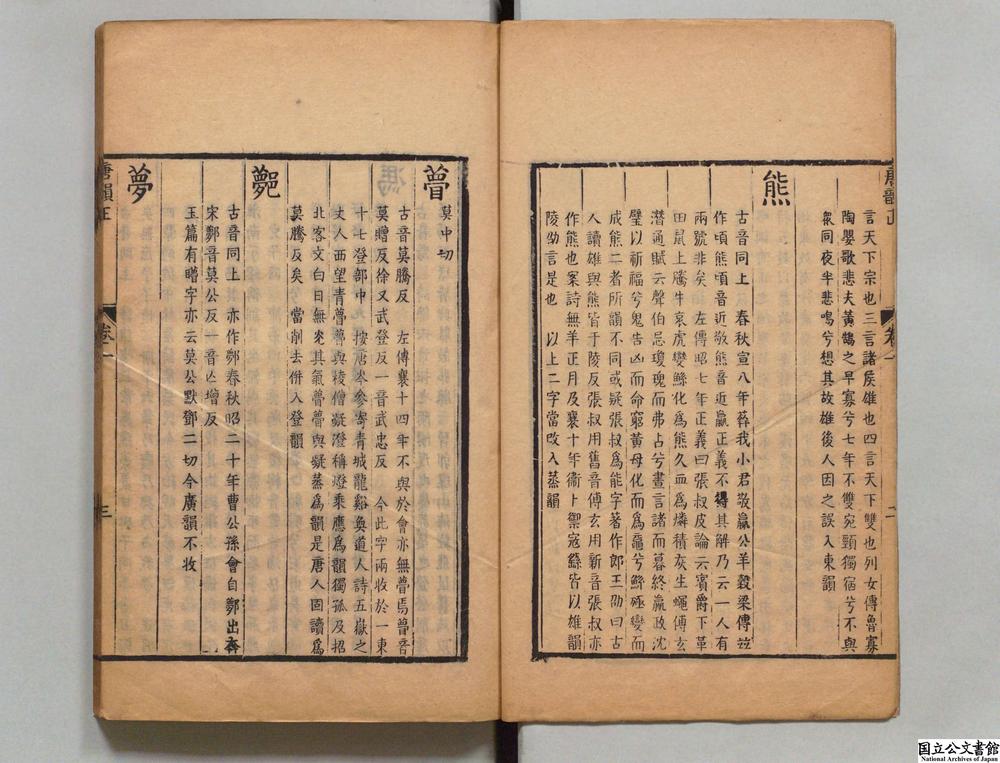 唐韻正 卷一 二
言天下宗也三言諸侯雄也四言天下雙也列女傳魯寡
陶嬰歌悲夫黃鵠之早寡兮七年不雙宛頸獨宿兮不與
衆同夜半悲鳴兮想其故雄後人因之誤入東韻
熊
古音同上 春秋宣八年葬我小君敬嬴公羊穀梁傳竝
作頃熊頃音近敬熊音近嬴正義不得其解乃云一人有
兩號非矣 左傳昭七年正義曰張叔皮論云賓爵下革
田鼠上騰牛哀虎變鯀化為熊久血為燐積灰生蠅傅玄
潛通賦云聲伯忌瓊瑰而弗占兮晝言諸而暮終嬴政沈
璧以祈福兮鬼告凶而命窮黃母化而為黿兮鯀殛變而
成熊二者所韻不同或疑張叔為能字著作郎王劭曰古
人讀雄與熊皆于陵反張叔用舊音傅玄用新音張叔亦
作熊也案詩無羊正月及襄十年衞卜禦寇繇皆以雄韻
陵劭言是也 以上二字當改入蒸韻
瞢
莫中切
古音莫騰反 左傳襄十四年不與於會亦無瞢焉瞢音
莫贈反徐又武登反一音武忠反 今此字兩收於一東
十七登部中 按唐岑參寄青城龍谿奐道人詩五嶽之
丈人西望青瞢瞢與稜僧凝澄稱燈乘應為韻獨孤及招
北客文白日無光其氣瞢瞢與凝蒸為韻是唐人固讀為
莫騰反矣 當削去併入登韻
鄸
古音同上 亦作鄸春秋昭二十年曹公孫會自鄸出奔
宋鄸音莫公反一音亡增反
玉篇有䁅字亦云莫公默鄧二切今廣韻不收
夢
唐韻正 卷一 三
国立公文書館
National Archives of Japan